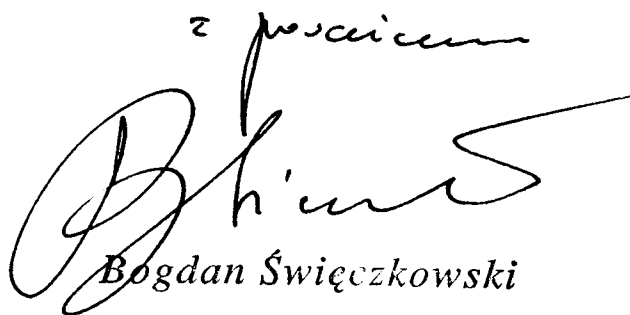 z poważaniem
Bogdan Święczkowski